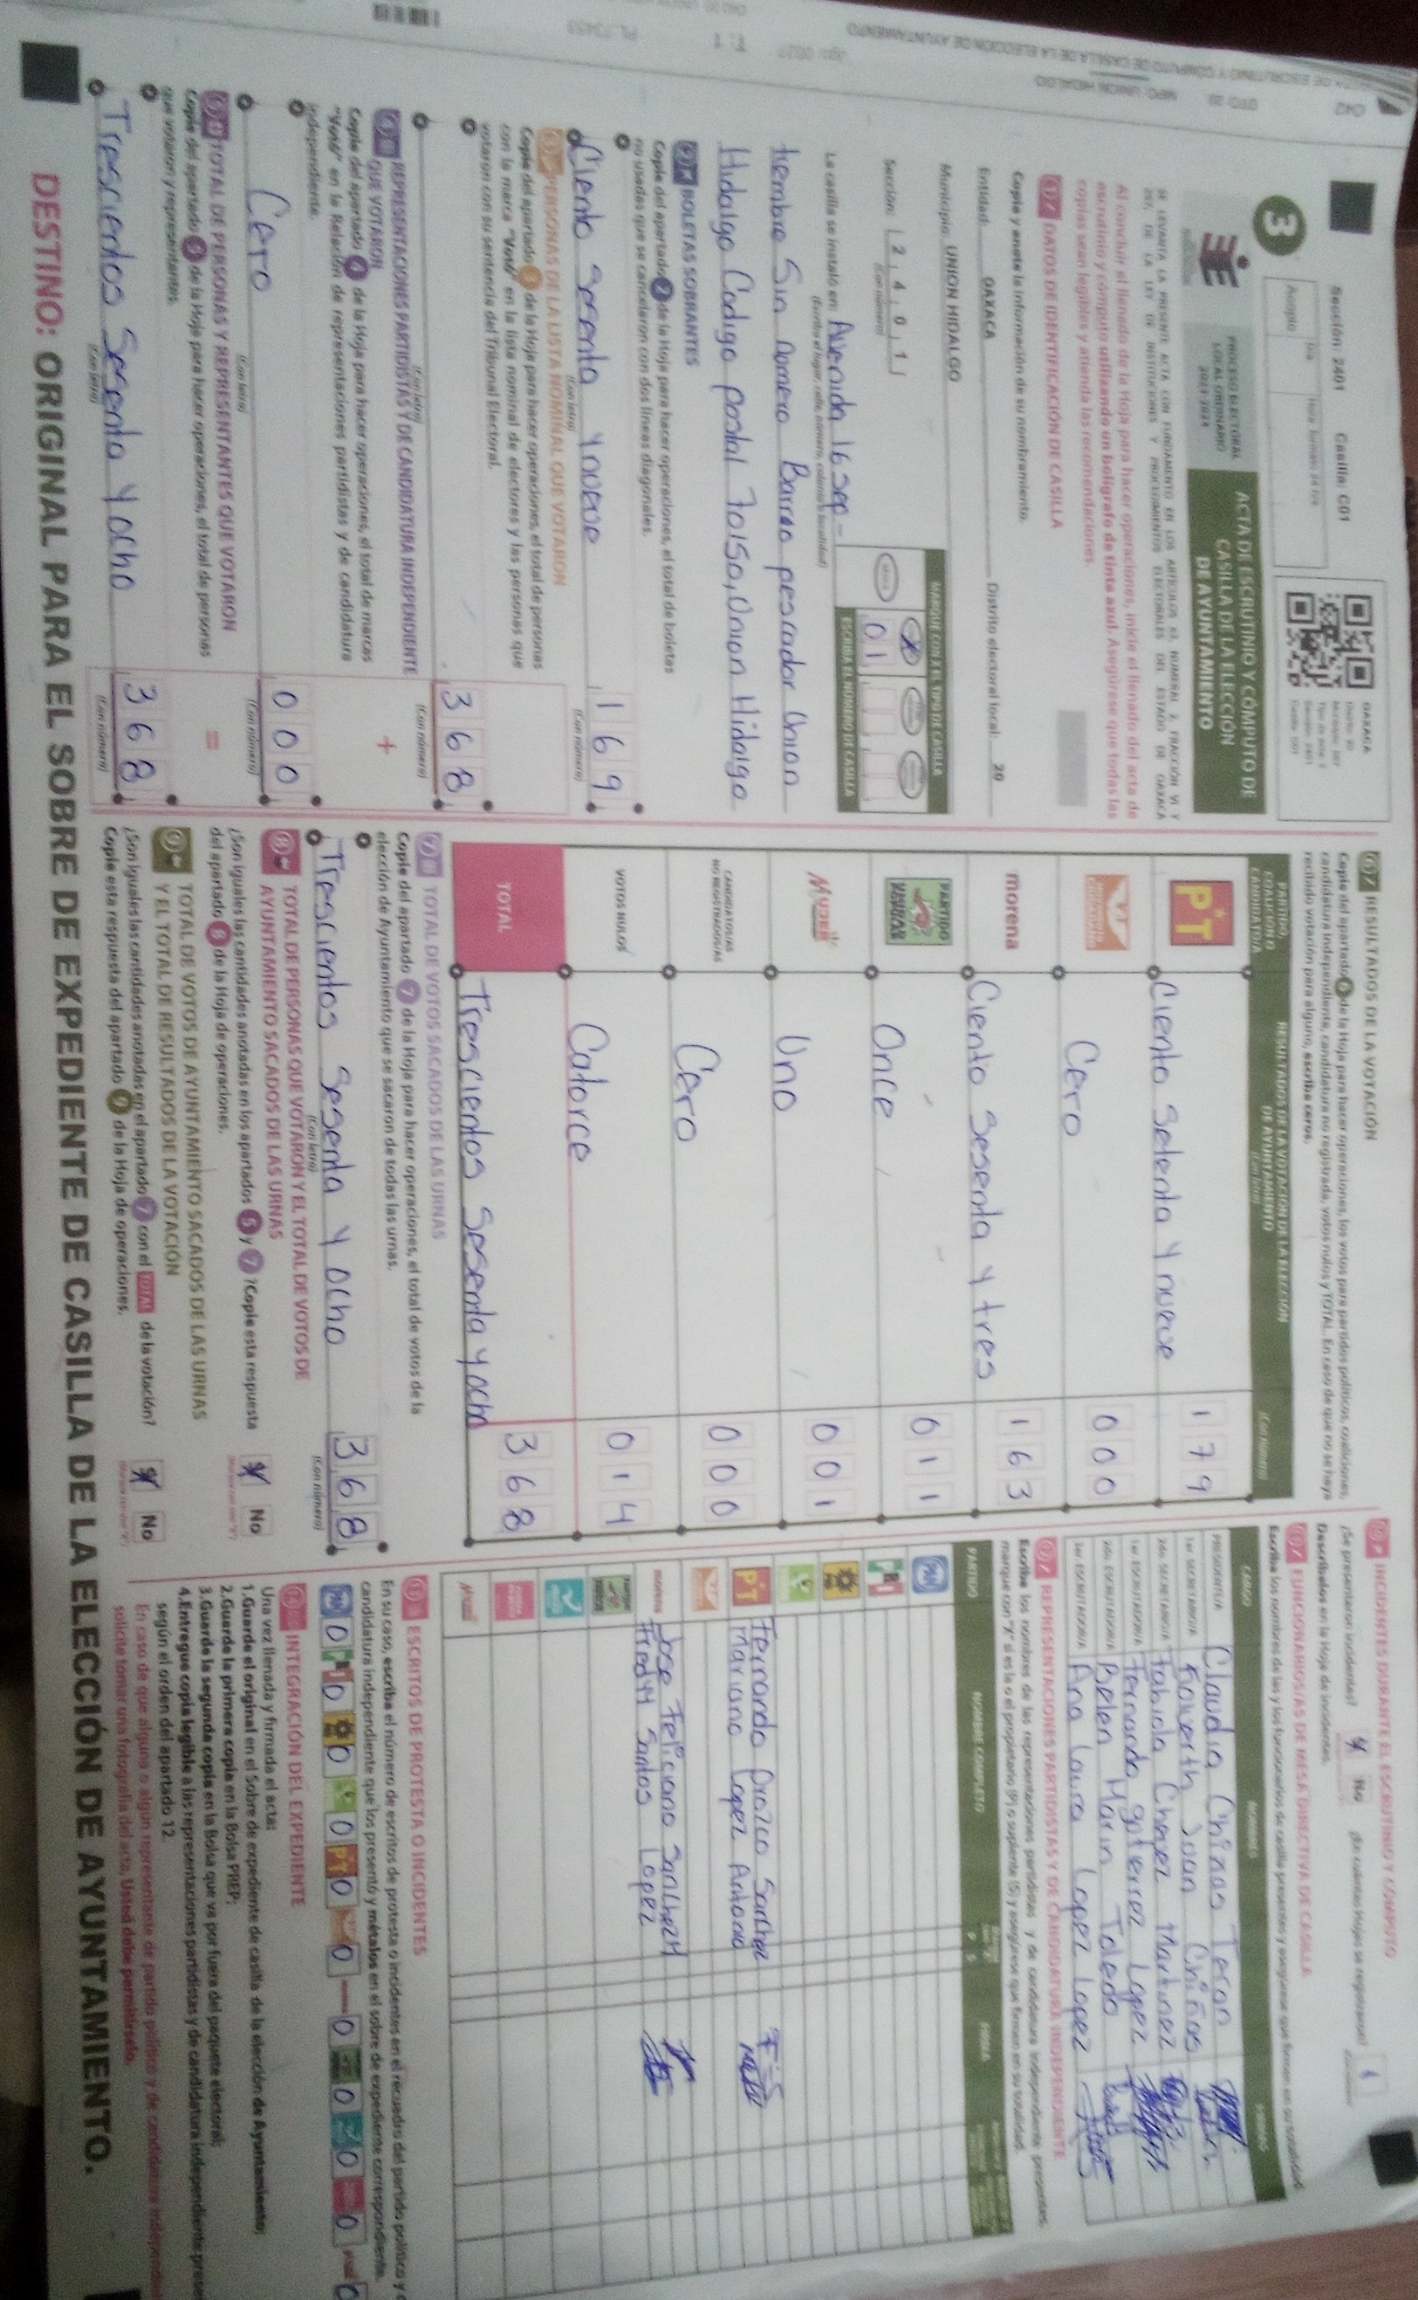 Sección: 2401 Casilla: C01
OAXACA
3
Acopio
PROCESO ELECTORAL
LOCAL ORDINARIO
2023-2024
ACTA DE ESCRUTINIO Y CÓMPUTO DE
CASILLA DE LA ELECCIÓN
DE AYUNTAMIENTO
SE LEVANTA LA PRESENTE ACTA CON FUNDAMENTO EN LOS ARTÍCULOS
Al concluir el llenado de la Hoja para hacer operaciones, inicie el llenado del acta de
escrutinio y cómputo utilizando un bolígrafo de tinta azul. Asegúrese que todas las
copias sean legibles y atienda las recomendaciones.
1 DATOS DE IDENTIFICACIÓN DE CASILLA
Copie y anote la información de su nombramiento.
Entidad: OAXACA Distrito electoral local: 20
Municipio: UNIÓN HIDALGO
Sección: 2401
(Con número)
MARQUE CON X EL TIPO DE CASILLA
01
ESCRIBA EL NÚMERO DE CASILLA
La casilla se instaló en: Avenida 16 sep-
(Escriba el lugar, calle, número, colonia o localidad)
tiembre Sin numero Barrio pescador Union
Hidalgo Codigo postal 70150, Union Hidalgo
2 BOLETAS SOBRANTES
Copie del apartado 2 de la Hoja para hacer operaciones, el total de boletas
no usadas que se cancelaron con dos líneas diagonales.
Ciento sesenta y nueve 169
(Con letra) (Con número)
3 PERSONAS DE LA LISTA NOMINAL QUE VOTARON
Copie del apartado 3 de la Hoja para hacer operaciones, el total de personas
con la marca "Votó" en la lista nominal de electores y las personas que
votaron con su sentencia del Tribunal Electoral.
368
(Con letra) (Con número)
4 REPRESENTACIONES PARTIDISTAS Y DE CANDIDATURA INDEPENDIENTE
QUE VOTARON
+
Copie del apartado 4 de la Hoja para hacer operaciones, el total de marcas
"Votó" en la Relación de representaciones partidistas y de candidatura
independiente.
Cero 000
(Con letra) (Con número)
5 TOTAL DE PERSONAS Y REPRESENTANTES QUE VOTARON
=
Copie del apartado 5 de la Hoja para hacer operaciones, el total de personas
que votaron y representantes.
Trescientos Sesenta y ocho 368
(Con letra) (Con número)
6 RESULTADOS DE LA VOTACIÓN
Copie del apartado 6 de la Hoja para hacer operaciones, los votos para partidos políticos, coaliciones,
candidatura independiente, candidatura no registrada, votos nulos y TOTAL. En caso de que no se haya
recibido votación para alguno, escriba ceros.
PARTIDO,
COALICIÓN O
CANDIDATURA
RESULTADOS DE LA VOTACIÓN DE LA ELECCIÓN
DE AYUNTAMIENTO
(Con letra) (Con número)
PT Ciento Setenta y nueve 179
Cero 000
morena Ciento Sesenta y tres 163
PARTIDO Once 011
Mujer Uno 001
CANDIDATOS/AS
NO REGISTRADOS/AS Cero 000
VOTOS NULOS Catorce 014
TOTAL Trescientos Sesenta y ocho 368
7 TOTAL DE VOTOS SACADOS DE LAS URNAS
Copie del apartado 7 de la Hoja para hacer operaciones, el total de votos de la
elección de Ayuntamiento que se sacaron de todas las urnas.
Trescientos Sesenta y ocho 368
(Con letra) (Con número)
8 TOTAL DE PERSONAS QUE VOTARON Y EL TOTAL DE VOTOS DE
AYUNTAMIENTO SACADOS DE LAS URNAS
¿Son iguales las cantidades anotadas en los apartados 5 y 7? Copie esta respuesta
del apartado 8 de la Hoja de operaciones.
Sí No
9 TOTAL DE VOTOS DE AYUNTAMIENTO SACADOS DE LAS URNAS
Y EL TOTAL DE RESULTADOS DE LA VOTACIÓN
¿Son iguales las cantidades anotadas en el apartado 7 con el TOTAL de la votación?
Copie esta respuesta del apartado 9 de la Hoja de operaciones.
Sí No
10 INCIDENTES DURANTE EL ESCRUTINIO Y CÓMPUTO
¿Se presentaron incidentes? Sí No ¿En cuántas Hojas se registraron? 1
Descríbalos en la Hoja de incidentes.
11 FUNCIONARIOS/AS DE MESA DIRECTIVA DE CASILLA
CARGO NOMBRES FIRMAS
PRESIDENTE/A Claudia Chiñas Teran
1er SECRETARIO/A Edwerth Joan Chiñas
2do SECRETARIO/A Fabiola Chavez Martinez
1er ESCRUTADOR/A Fernando gutierrez Lopez
2do ESCRUTADOR/A Belen Marin Toledo
3er ESCRUTADOR/A Ana Laura Lopez Lopez
12 REPRESENTACIONES PARTIDISTAS Y DE CANDIDATURA INDEPENDIENTE
Escriba los nombres de las representaciones partidistas y de candidatura independiente presentes,
marque con "X" si es la o el propietario (P) o suplente (S) y asegúrese que firmen en su totalidad.
PARTIDO NOMBRE COMPLETO P S FIRMA
PAN
PRI
PT Fernando Orozco Sanchez
Mariano Lopez Antonio
morena Jose Feliciano Sanchez H
Fredyy Santos Lopez
13 ESCRITOS DE PROTESTA O INCIDENTES
En su caso, escriba el número de escritos de protesta o incidentes en el recuadro del partido político y
candidatura independiente que los presentó y métalos en el sobre de expediente correspondiente.
PAN 0 PRI 0 0 0 PT 0 0 0 0 0 0 0
14 INTEGRACIÓN DEL EXPEDIENTE
Una vez llenada y firmada el acta:
1.Guarde el original en el Sobre de expediente de casilla de la elección de Ayuntamiento;
2.Guarde la primera copia en la Bolsa PREP;
3.Guarde la segunda copia en la Bolsa que va por fuera del paquete electoral;
4.Entregue copia legible a las representaciones partidistas y de candidatura independiente
según el orden del apartado 12.
En caso de que alguna o algún representante de partido político y de candidatura
solicite tomar una fotografía del acta, Usted debe permitírselo.
DESTINO: ORIGINAL PARA EL SOBRE DE EXPEDIENTE DE CASILLA DE LA ELECCIÓN DE AYUNTAMIENTO.